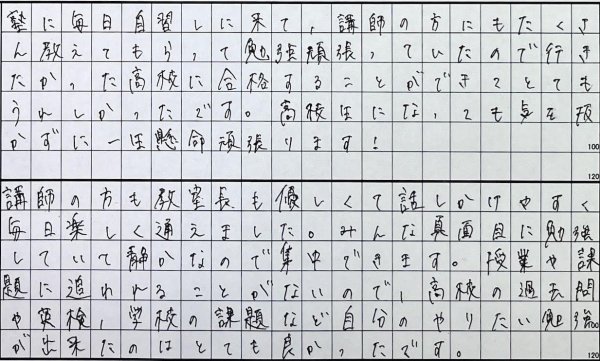 塾に毎日自習しに来て,講師の方にもたくさ
ん教えてもらって勉強頑張っていたので行き
たかった高校に合格することができてとても
うれしかったです。高校生になっても気を抜
かずに一生懸命頑張ります!
100
120
講師の方も教室長も優しくて話しかけやすく
毎日楽しく通えました。みんな真面目に勉強
していて静かなので集中できます。授業や課
題に追われることがないので,高校の過去問
や英検,学校の課題など自分のやりたい勉強
100
が出来たのはとても良かったです。
120